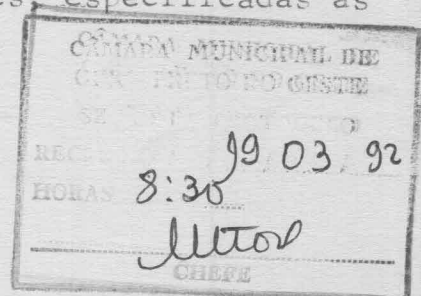 es, especificadas as
CÂMARA MUNICIPAL DE
OURO PRETO DO OESTE
RECE 19 03 92
HORAS 8:30
CHEFE